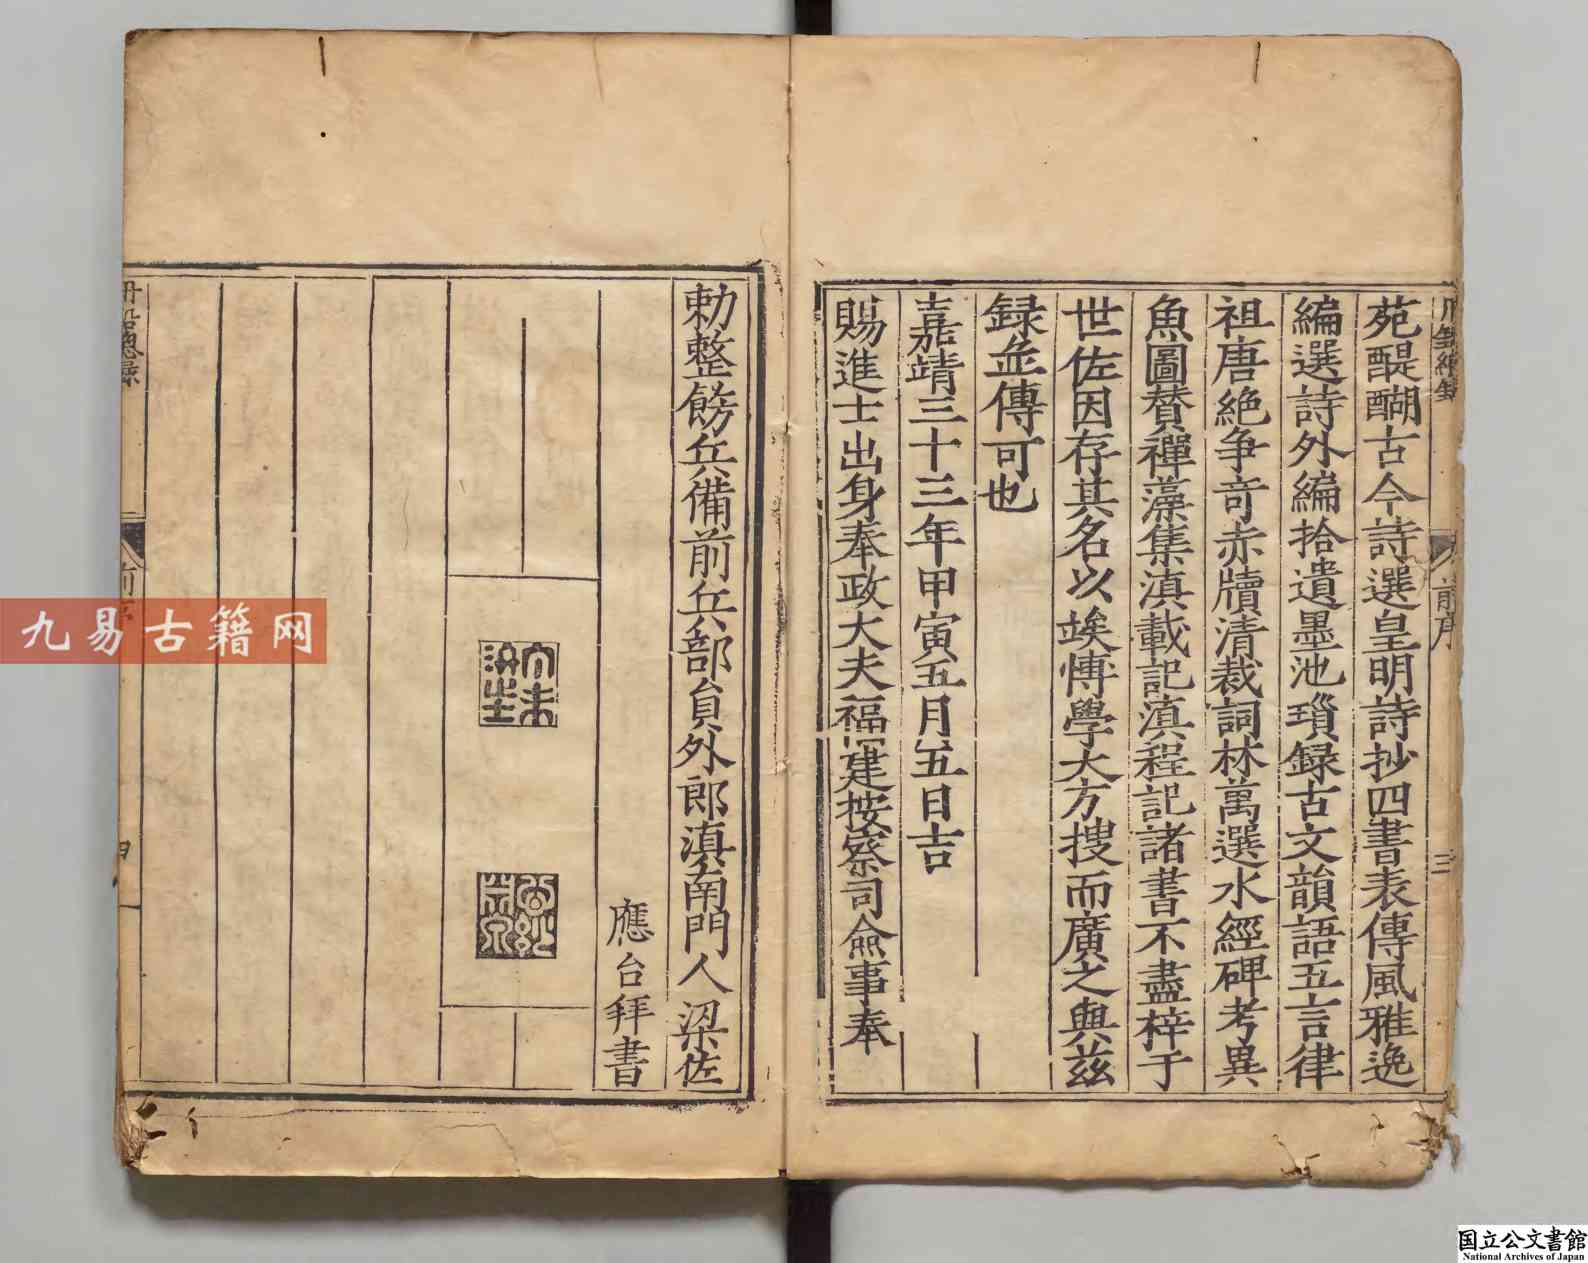 苑醍醐古今詩選皇明詩抄四書表傳風雅逸
編選詩外編拾遺墨池瑣録古文韻語五言律
祖唐絶争奇赤牘清裁詞林萬選水經碑考異
魚圖賛禪藻集滇載記滇程記諸書不盡梓于
世佐因存其名以竢愽學大方搜而廣之與茲
録並傳可也
嘉靖三十三年甲寅五月五日吉
賜進士出身奉政大夫福建按察司僉事奉
勅整飭兵備前兵部員外郎滇南門人梁佐
應台拜書
前序
三
丹鉛總録
九易古籍网
国立公文書館
National Archives of Japan